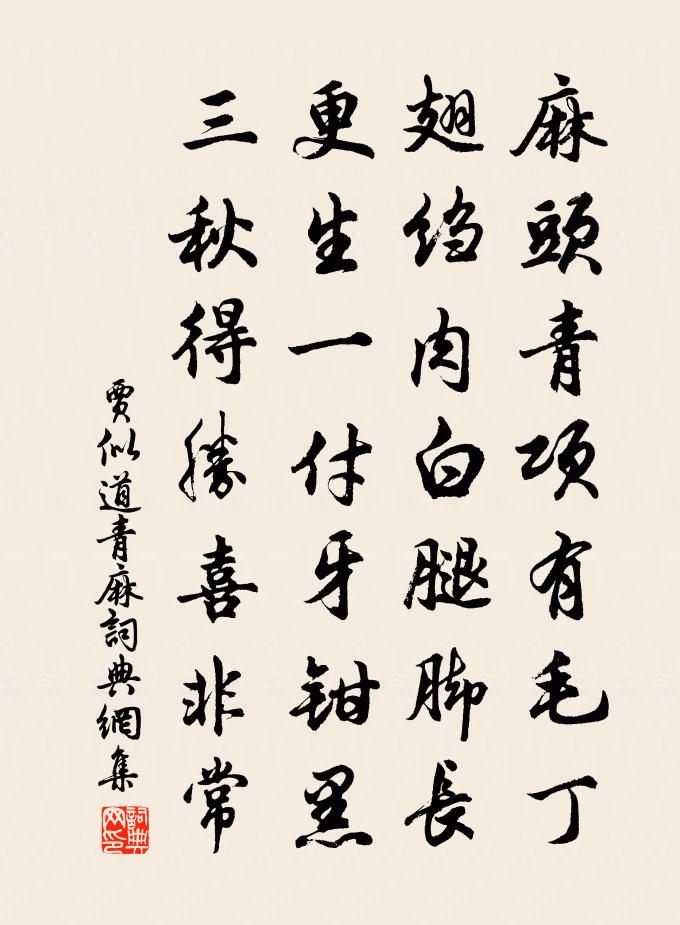 麻頭青項有毛丁
翅绉肉白腿脚長
更生一付牙钳黑
三秋得勝喜非常
賈似道青麻詞典網集
詞典網印